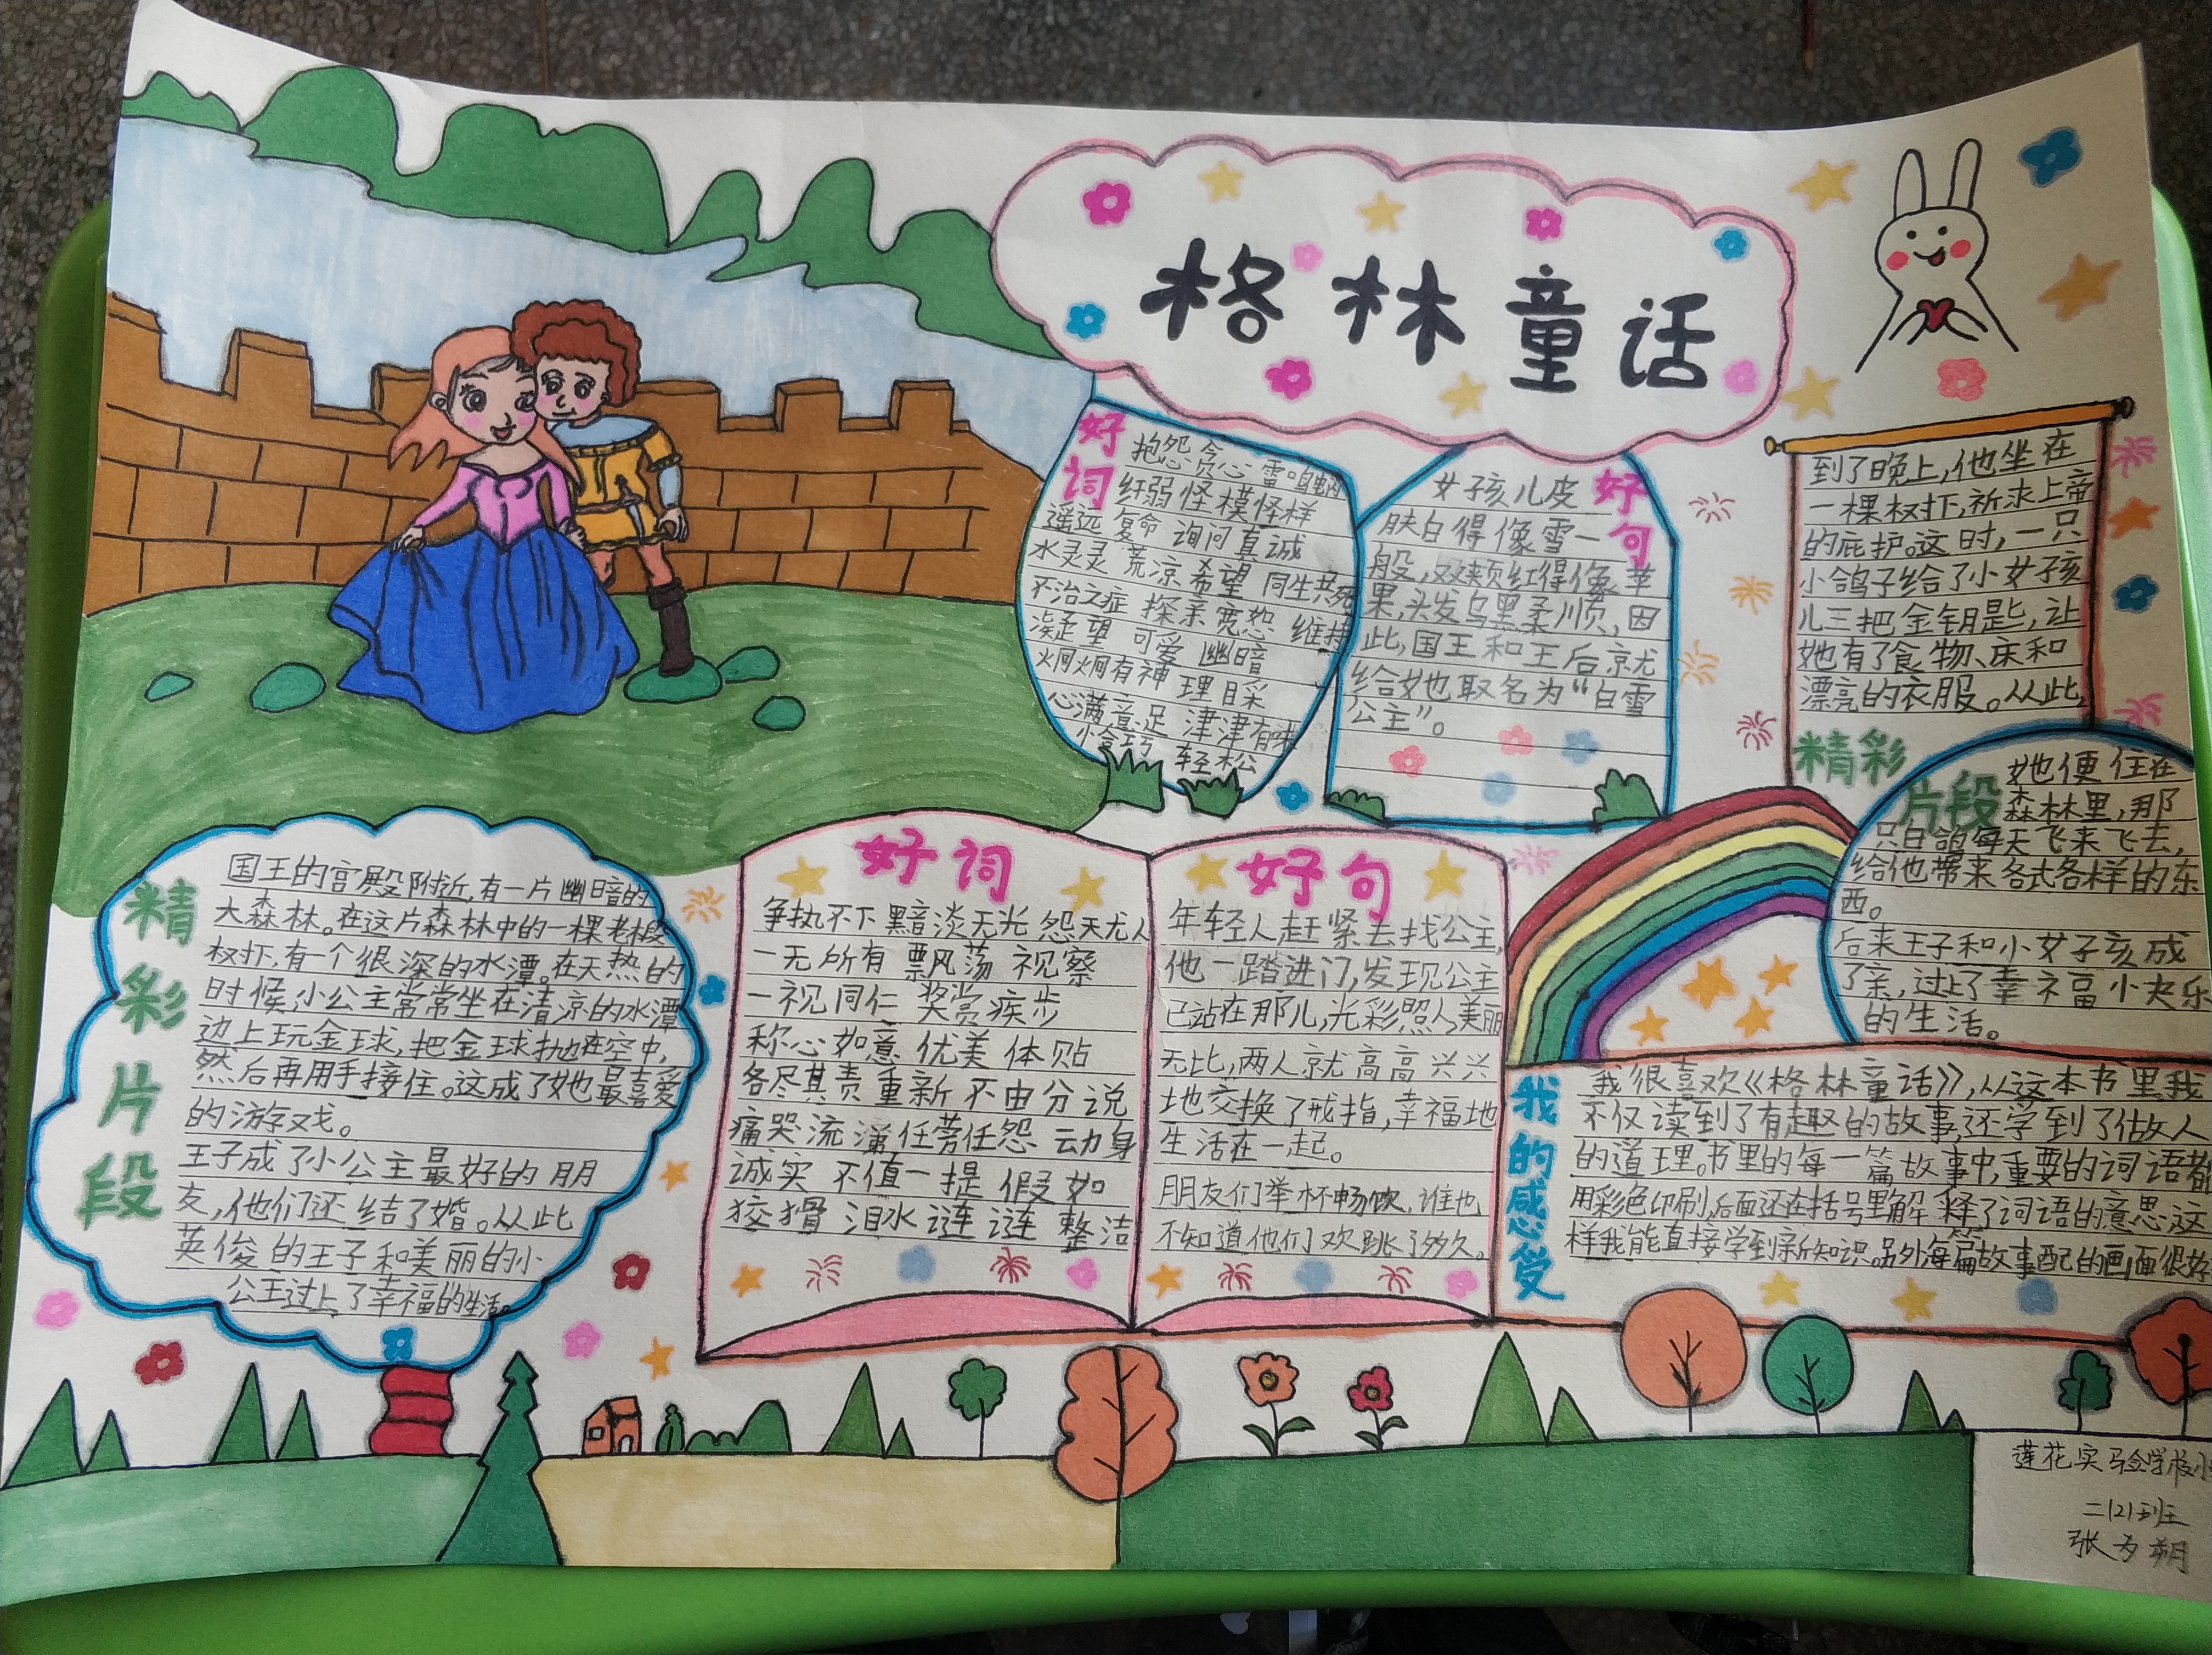 格林童话
好词
抱怨 贪心 雷鸣般
纤弱 怪模怪样
遥远 复命 询问 真诚
水灵灵 荒凉 希望 同生共死
不治之症 探亲 宽恕 维持
凝望 可爱 幽暗
炯炯有神 理睬
心满意足 津津有味
恰巧 轻松
好句
女孩儿皮
肤白得像雪一
般,双颊红得像苹
果,头发乌黑柔顺,因
此,国王和王后就
给她取名为“白雪
公主”。
到了晚上,他坐在
一棵树下,祈求上帝
的庇护。这时,一只
小鸽子给了小女孩
儿三把金钥匙,让
她有了食物、床和
漂亮的衣服。从此,
精彩
片段
她便住在
森林里,那
只白鸽每天飞来飞去,
给他带来各式各样的东
西。
后来王子和小女孩成
了亲,过上了幸福快乐
的生活。
精彩片段
国王的宫殿附近,有一片幽暗的
大森林。在这片森林中的一棵老椴
树下,有一个很深的水潭。在天热的
时候,小公主常常坐在清凉的水潭
边上玩金球,把金球抛在空中,
然后再用手接住。这成了她最喜爱
的游戏。
王子成了小公主最好的朋
友,他们还结了婚。从此
英俊的王子和美丽的小
公主过上了幸福的生活。
好词
争执不下 黯淡无光 怨天尤人
一无所有 飘荡 视察
一视同仁 奖赏 疾步
称心如意 优美 体贴
各尽其责 重新 不由分说
痛哭流涕 任劳任怨 动身
诚实 不值一提 假如
狡猾 泪水涟涟 整洁
好句
年轻人赶紧去找公主,
他一踏进门,发现公主
已站在那儿,光彩照人,美丽
无比,两人就高高兴兴
地交换了戒指,幸福地
生活在一起。
朋友们举杯畅饮,谁也
不知道他们欢跳了多久。
我的感受
我很喜欢《格林童话》,从这本书里我
不仅读到了有趣的故事,还学到了做人
的道理。书里的每一篇故事中,重要的词语都
用彩色印刷,后面还在括号里解释了词语的意思,这
样我能直接学到新知识。另外每篇故事配的画面很好
莲花实验学校小
二(2)班
张为朔